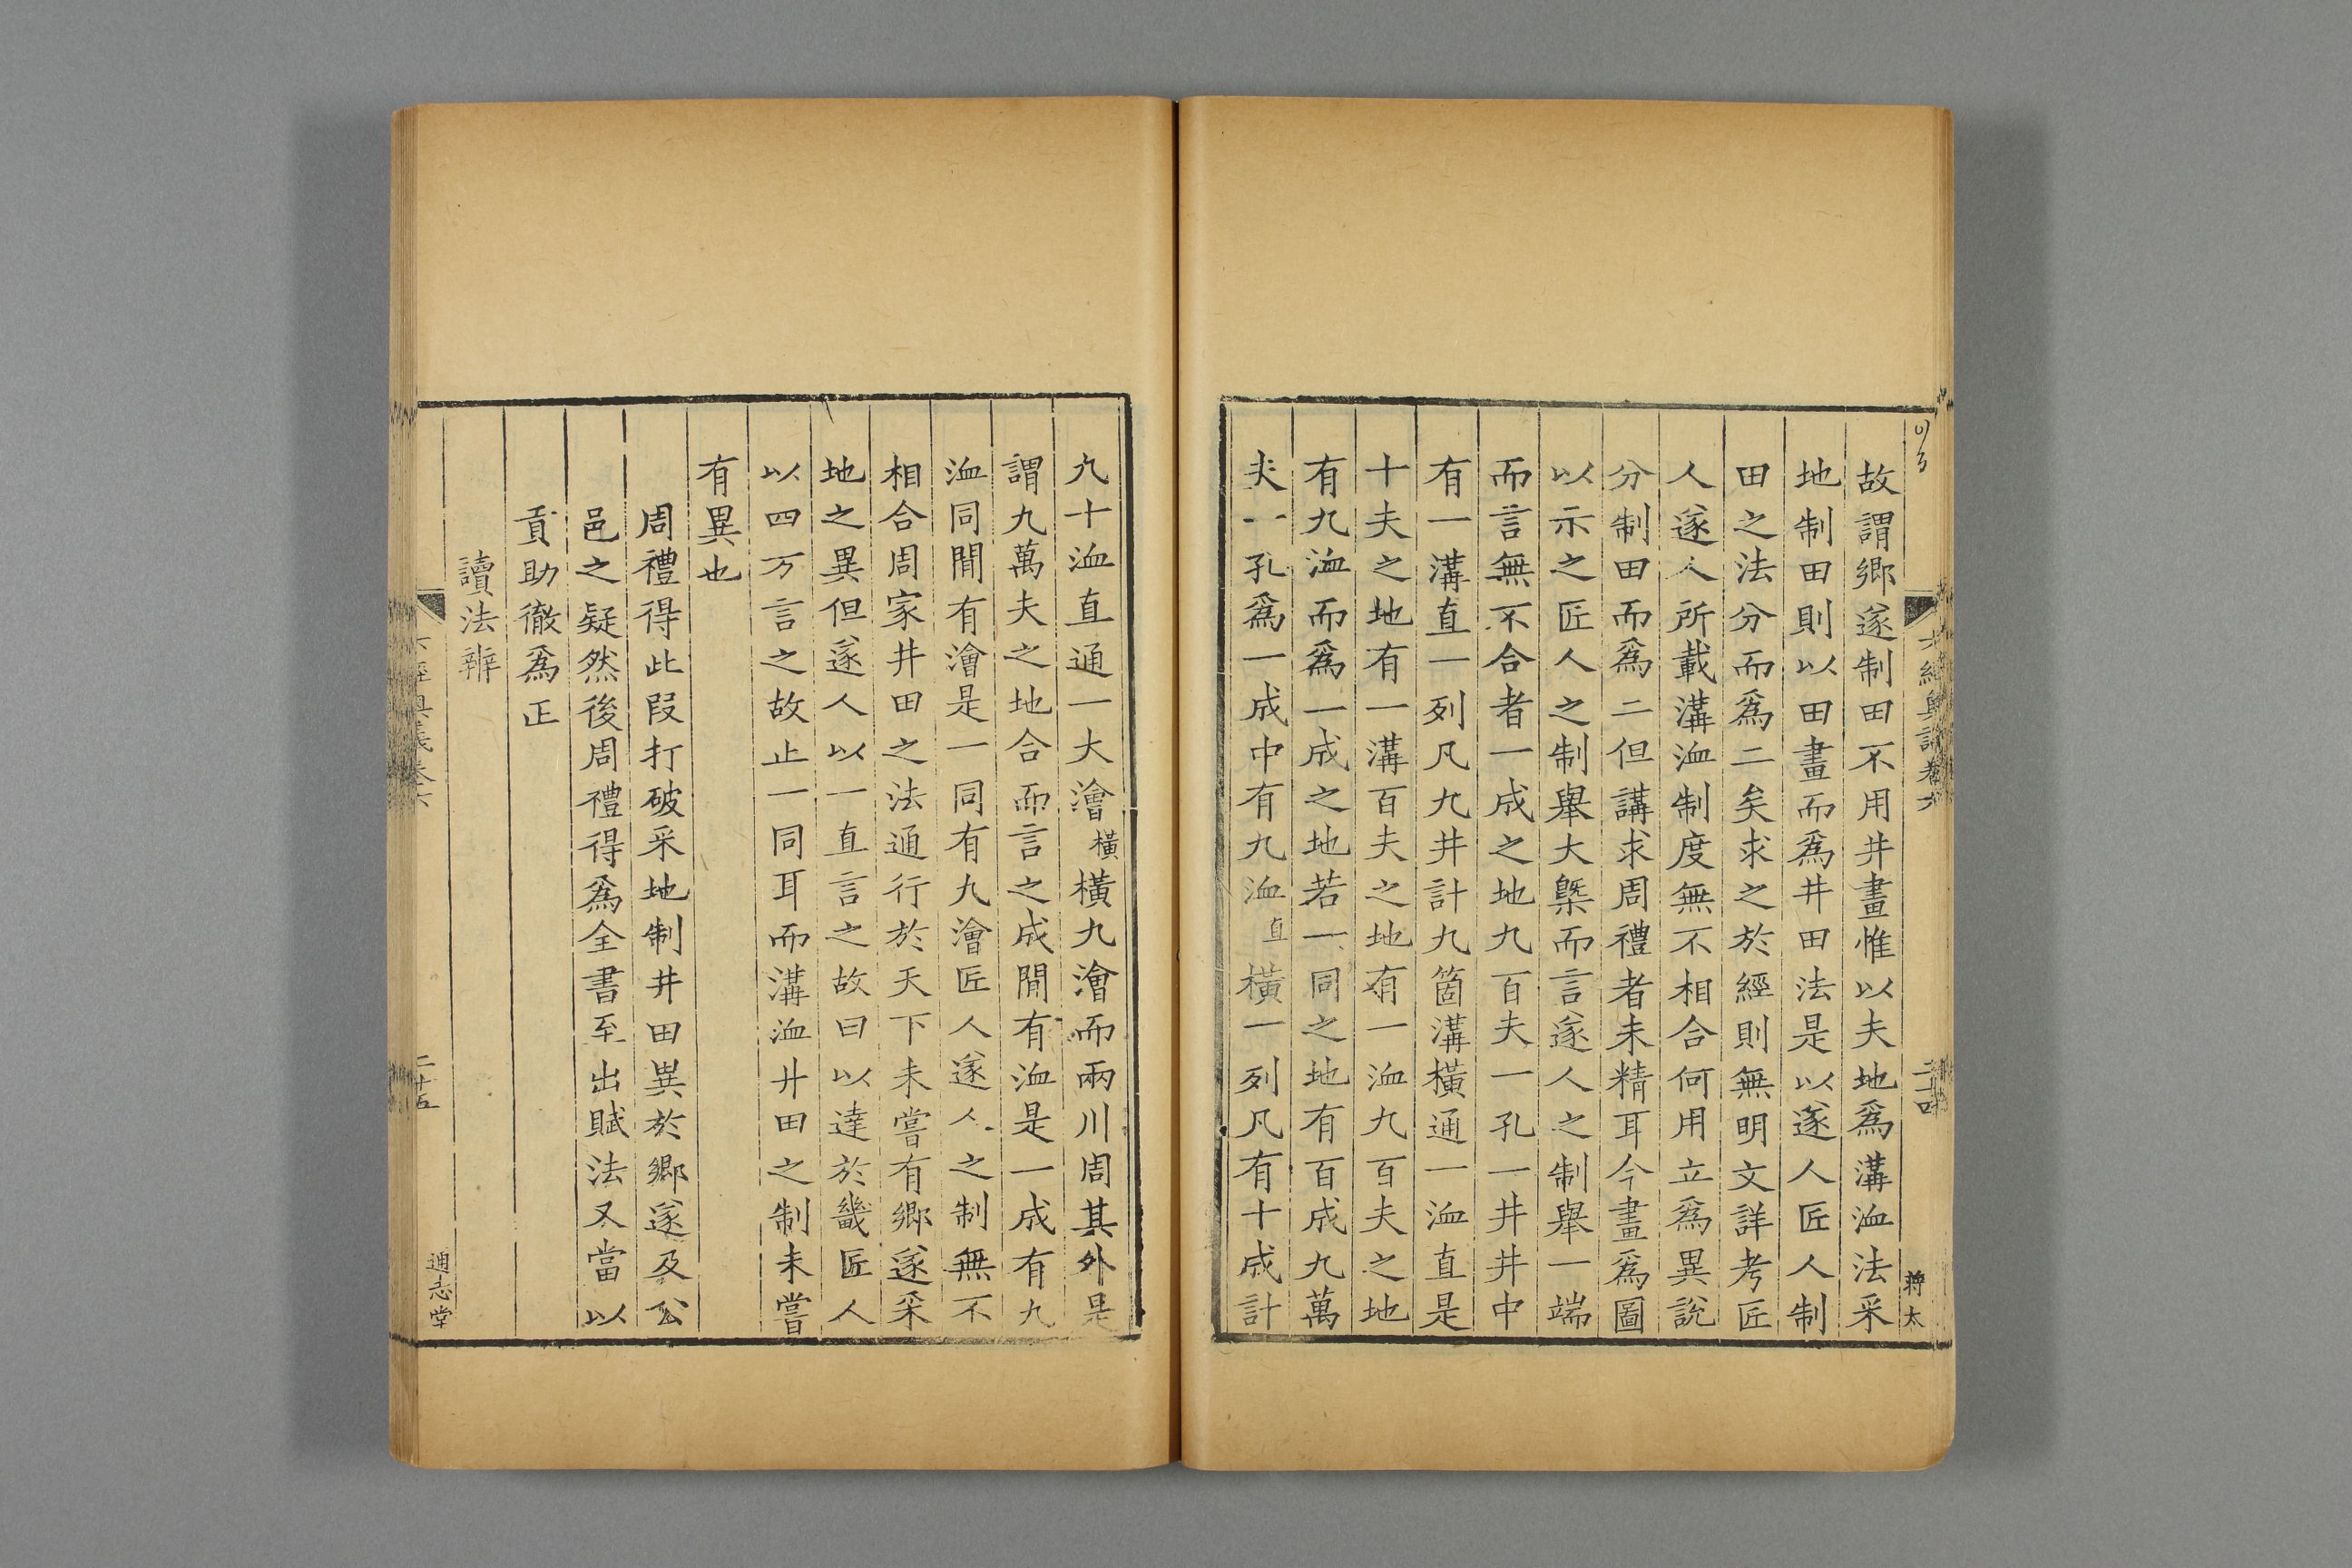 故謂鄉遂制田不用井畫惟以夫地為溝洫法采
地制田則以田畫而為井田法是以遂人匠人制
田之法分而為二矣求之於經則無明文詳考匠
人遂人所載溝洫制度無不相合何用立為異說
分制田而為二但講求周禮者未精耳今畫為圖
以示之匠人之制舉大槩而言遂人之制舉一端
而言無不合者一成之地九百夫一孔一井井中
有一溝直一列凡九井計九箇溝橫通一洫直是
十夫之地有一溝百夫之地有一洫九百夫之地
有九洫而為一成之地若一同之地有百成九萬
夫一孔為一成中有九洫直橫一列凡有十成計
蔣太
九十洫直通一大澮橫橫九澮而兩川周其外是
謂九萬夫之地合而言之成閒有洫是一成有九
洫同閒有澮是一同有九澮匠人遂人之制無不
相合周家井田之法通行於天下未嘗有鄉遂采
地之異但遂人以一直言之故曰以達於畿匠人
以四方言之故止一同耳而溝洫井田之制未嘗
有異也
周禮得此段打破采地制井田異於鄉遂及公
邑之疑然後周禮得為全書至出賦法又當以
貢助徹為正
讀法辨
二十五
通志堂